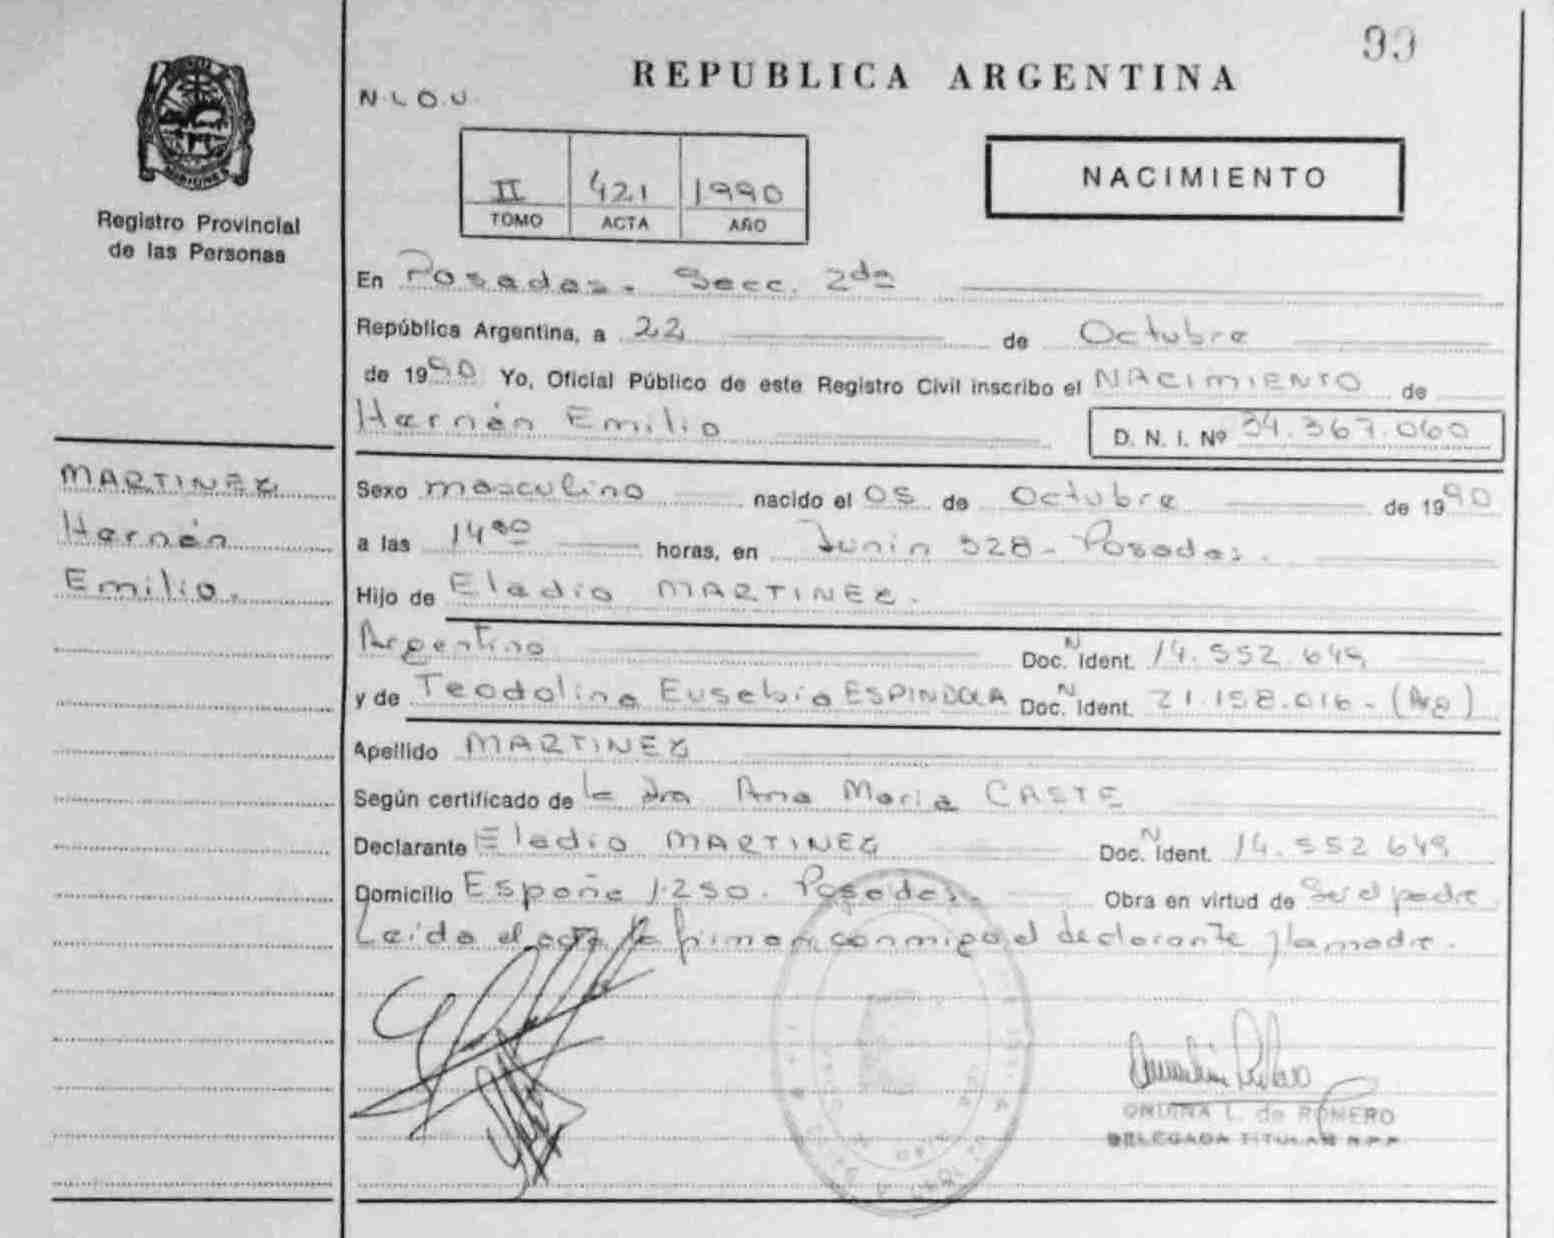 99
REPUBLICA ARGENTINA
N.L.O.U.
II 421 1990
TOMO ACTA AÑO
NACIMIENTO
MISIONES
Registro Provincial
de las Personas
En Posadas. Secc. 2da
República Argentina, a 22 de Octubre
de 1990 Yo, Oficial Público de este Registro Civil inscribo el NACIMIENTO de
Hernán Emilio D. N. I. Nº 34.367.060
MARTINEZ
Hernán
Emilio.
Sexo masculino nacido el 05 de Octubre de 1990
a las horas, en Junin 328 - Posadas.
Hijo de Eladio MARTINEZ.
Argentino Doc. N Ident. 14.552.649
y de Teodolina Eusebia ESPINDOLA Doc. N Ident. 21.158.016 - (Arg)
Apellido MARTINEZ
Según certificado de la Dra Ana Maria CASTE
Declarante Eladio MARTINEZ Doc. N Ident. 14.552.649
Domicilio España 1.250. Posadas. Obra en virtud de Ser el padre
Leida el acta la firman conmigo el declarante y la madre.
L. de ROMERO
DELEGADA TITULAR R.P.P.